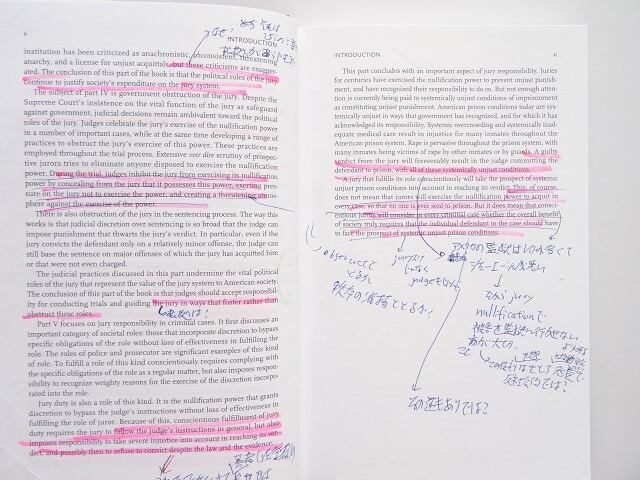 x
INTRODUCTION
institution has been criticized as anachronistic, inconsistent, threatening
anarchy, and a license for unjust acquittals, but these criticisms are exagger-
ated. The conclusion of this part of the book is that the political roles of the jury
continue to justify society's expenditure on the jury system.
The subject of part IV is government obstruction of the jury. Despite the
Supreme Court's insistence on the vital function of the jury as safeguard
against government, judicial decisions remain ambivalent toward the political
roles of the jury. Judges celebrate the jury's exercise of the nullification power
in a number of important cases, while at the same time developing a range of
practices to obstruct the jury's exercise of this power. These practices are
employed throughout the trial process. Extensive voir dire scrutiny of prospec-
tive jurors tries to eliminate anyone disposed to exercise the nullification
power. During the trial, judges inhibit the jury from exercising its nullification
power by concealing from the jury that it possesses this power, exerting pres-
sure on the jury not to exercise the power, and creating a threatening atmo-
sphere against the exercise of the power.
There is also obstruction of the jury in the sentencing process. The way this
works is that judicial discretion over sentencing is so broad that the judge can
impose punishment that thwarts the jury's verdict. In particular, even if the
jury convicts the defendant only on a relatively minor offense, the judge can
still base the sentence on major offenses of which the jury has acquitted him
or that were not even charged.
The judicial practices discussed in this part undermine the vital political
roles of the jury that represent the value of the jury system to American society.
The conclusion of this part of the book is that judges should accept responsibil-
ity for conducting trials and guiding the jury in ways that foster rather than
obstruct these roles.
Part V focuses on jury responsibility in criminal cases. It first discusses an
important category of societal roles: those that incorporate discretion to bypass
specific obligations of the role without loss of effectiveness in fulfilling the
role. The roles of police and prosecutor are significant examples of this kind
of role. To fulfill a role of this kind conscientiously requires complying with
the specific obligations of the role as a regular matter, but also imposes respon-
sibility to recognize weighty reasons for the exercise of the discretion incorpo-
rated into the role.
Jury duty is also a role of this kind. It is the nullification power that grants
discretion to bypass the judge's instructions without loss of effectiveness in
fulfilling the role of juror. Because of this, conscientious fulfillment of jury
duty requires the jury to follow the judge's instructions in general, but also
imposes responsibility to take severe injustice into account in reaching its ver-
dict, and possibly then to refuse to convict despite the law and the evidence.
INTRODUCTION
xi
This part concludes with an important aspect of jury responsibility. Juries
for centuries have exercised the nullification power to prevent unjust punish-
ment, and have recognized their responsibility to do so. But not enough atten-
tion is currently being paid to systemically unjust conditions of imprisonment
as constituting unjust punishment. American prison conditions today are sys-
temically unjust in ways that government has recognized, and for which it has
acknowledged its responsibility. Systemic overcrowding and systemically inad-
equate medical care result in injustice for many inmates throughout the
American prison system. Rape is pervasive throughout the prison system, with
many inmates being victims of rape by other inmates or by guards. A guilty
verdict from the jury will foreseeably result in the judge committing the
defendant to prison, with all of these systemically unjust conditions.
A jury that fulfills its role conscientiously will take the prospect of systemic
unjust prison conditions into account in reaching its verdict. This, of course,
does not mean that jurors will exercise the nullification power to acquit in
every case, so that no one is ever sent to prison. But it does mean that consci-
entious jurors will consider in every criminal case whether the overall benefit
of society truly requires that the individual defendant in the case should have
to face the prospect of systemic unjust prison conditions.
jury
nullificationで
その逆もありでは?